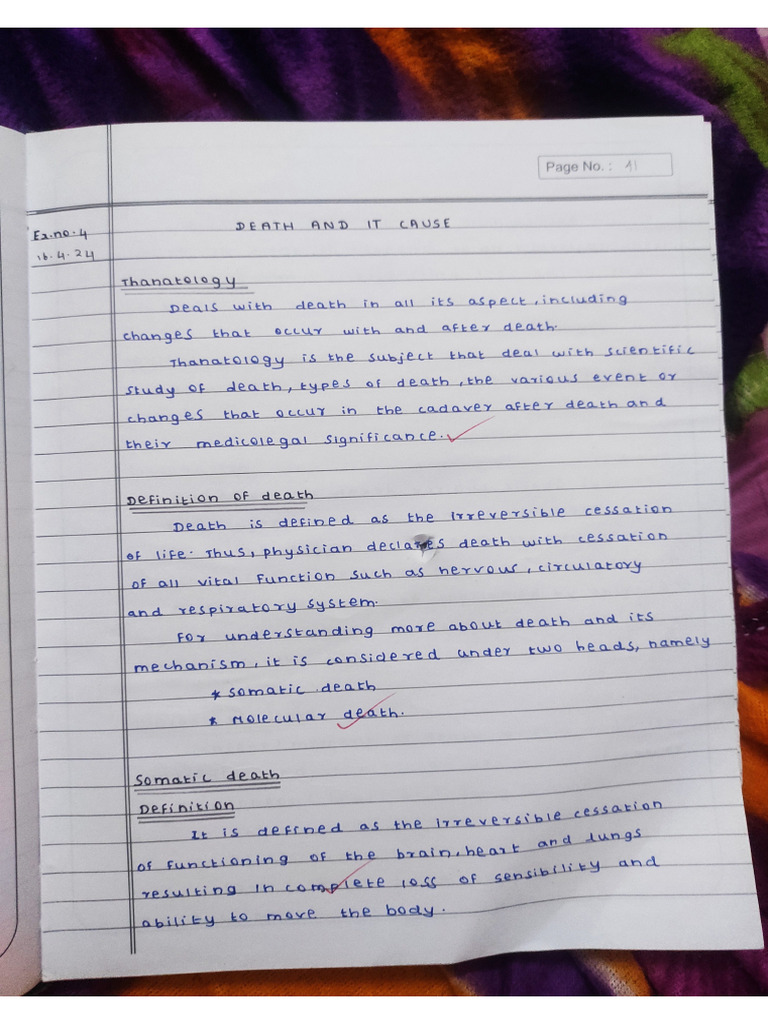 Page No. : 41
DEATH AND IT CAUSE
Ex.no.4
16.4.24
Thanatology
Deals with death in all its aspect, including
changes that occur with and after death.
Thanatology is the subject that deal with scientific
study of death, types of death, the various event or
changes that occur in the cadaver after death and
their medicolegal significance.
Definition of death
Death is defined as the irreversible cessation
of life. Thus, physician declares death with cessation
of all vital function such as nervous, circulatory
and respiratory system.
For understanding more about death and its
mechanism, it is considered under two heads, namely
* Somatic death
* Molecular death.
Somatic death
Definition
It is defined as the irreversible cessation
of functioning of the brain, heart and lungs
resulting in complete loss of sensibility and
ability to move the body.